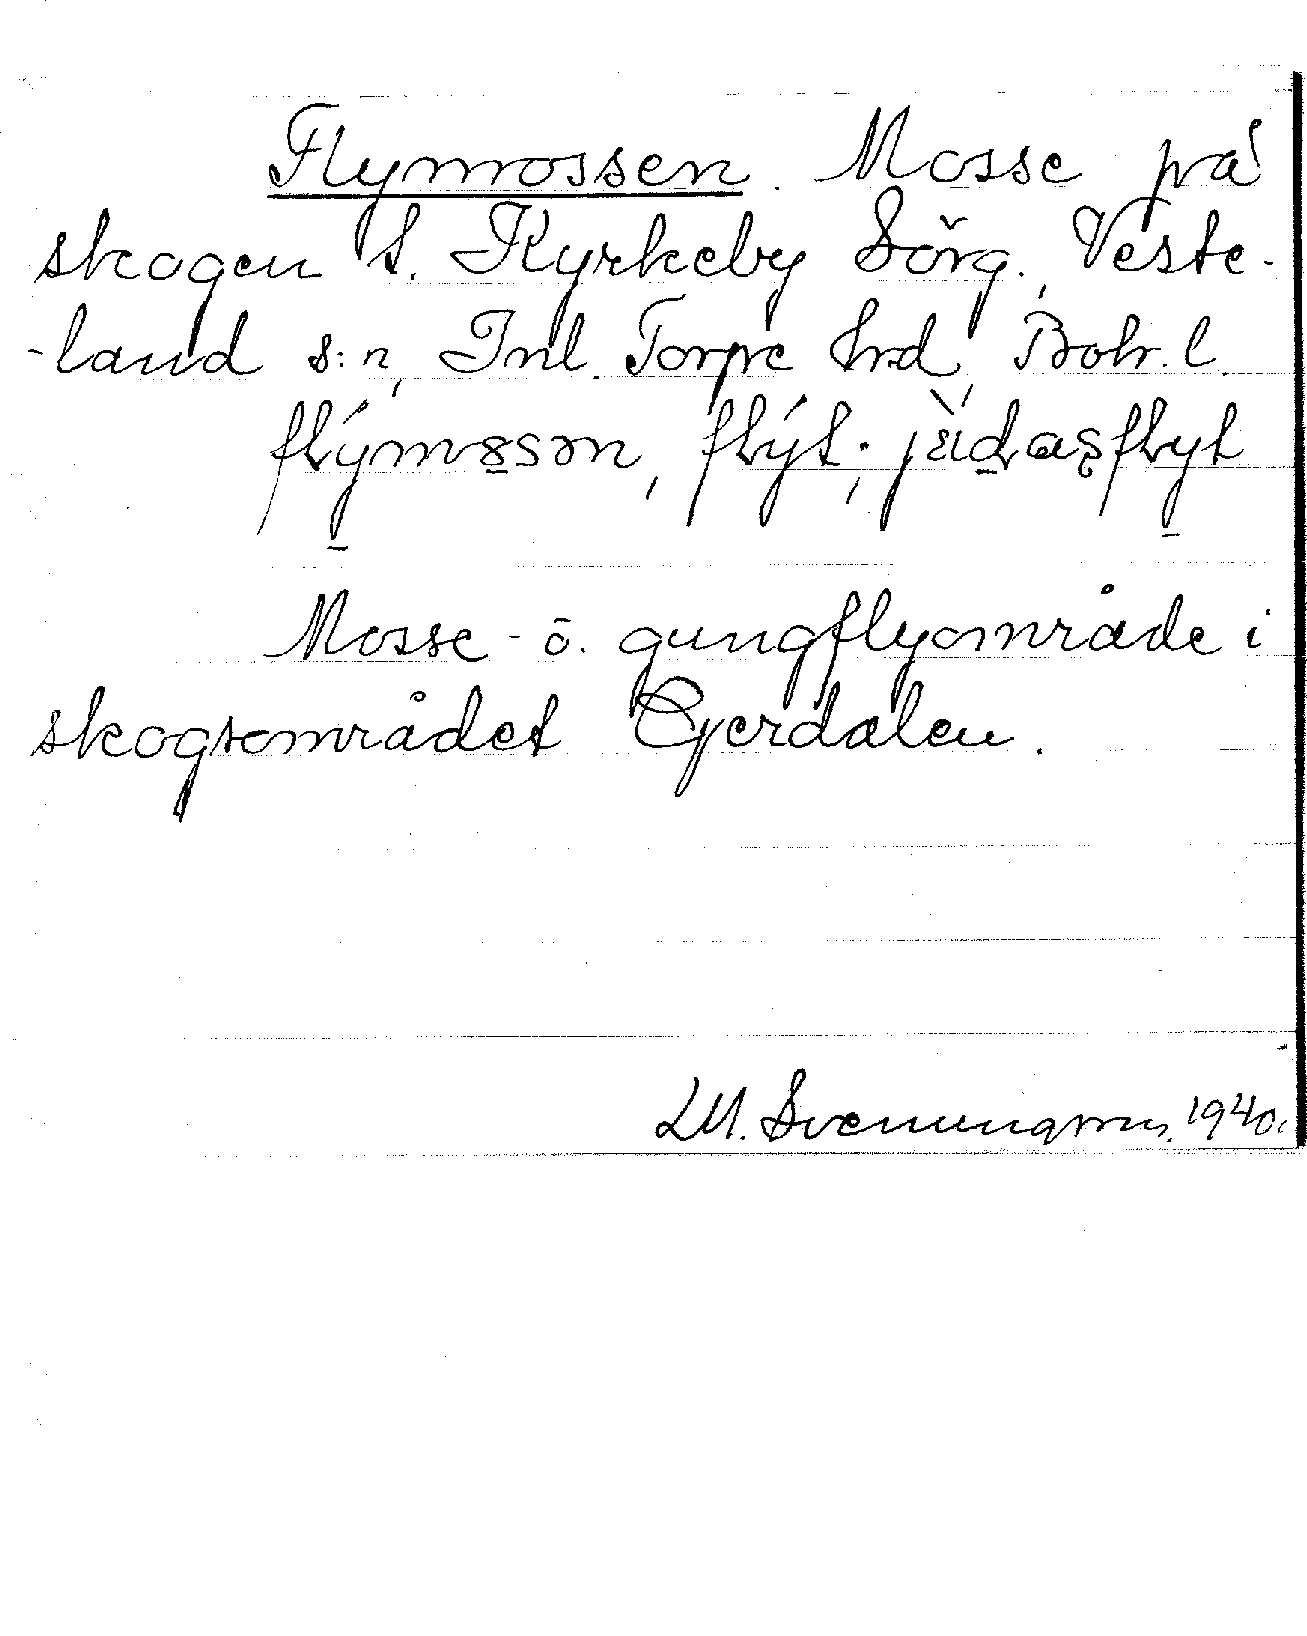 Flymossen. Mosse på
skogen t. Kyrkeby Sörg., Veste-
-land s:n, Inl. Torpe hrd, Boh. l.
flýmȣsən, flýt; jùdasflyt
Mosse- o. gungflyområde i
skogsområdet Gjerdalen.
LM. Svenungsson, 1940.